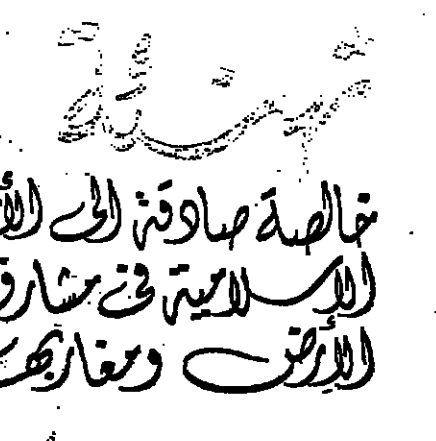 تهنئة
خالصة صادقة إلى الأ
الإسلامية في مشارق
الأرض ومغاربها